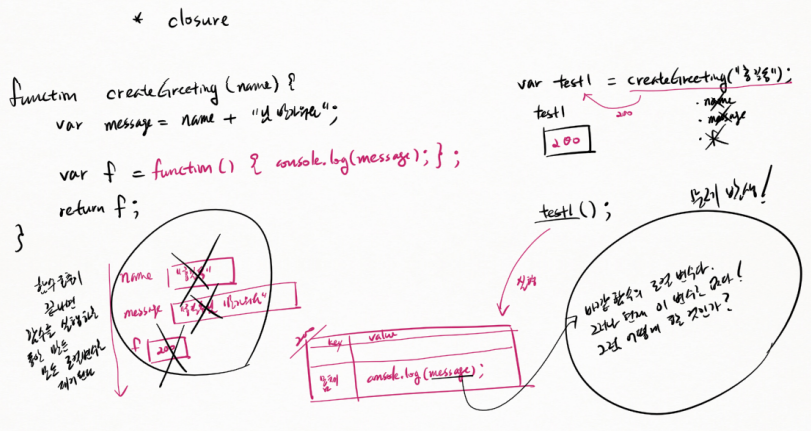 * closure
function createGreeting (name) {
var message = name + "님 반가워요";
var f = function() { console.log(message); } ;
return f;
}
var test1 = createGreeting("홍길동");
200
test1
200
· name
· message
· f
test1();
실행
문제 발생!
바깥 함수의 로컬 변수다.
그러나 현재 이 변수는 없다!
그럼 어떻게 할 것인가?
함수 호출이
끝나면
함수를 실행하는
동안 만든
모든 로컬변수는
제거된다
name "홍길동"
message "홍길동님 반가워요"
f 200
200
key value
console.log(message);